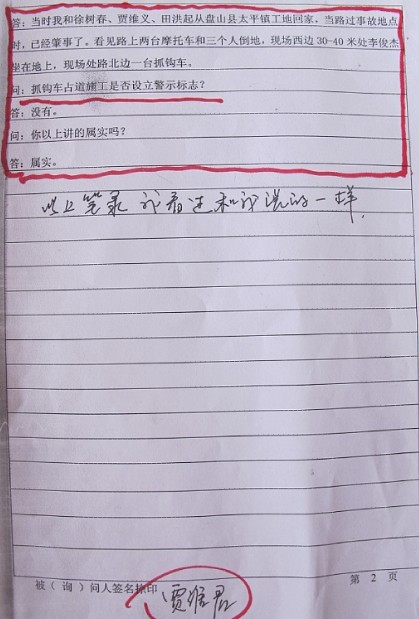 答：当时我和徐树春、贾维义、田洪起从盘山县太平镇工地回家，当路过事故地点
时，已经肇事了。看见路上两台摩托车和三个人倒地，现场西边30-40米处李俊杰
坐在地上，现场处路北边一台抓钩车。
问：抓钩车占道施工是否设立警示标志？
答：没有。
问：你以上讲的属实吗？
答：属实。
以上笔录我看过和我说的一样.
被（询）问人签名捺印
贾维君
第 2 页